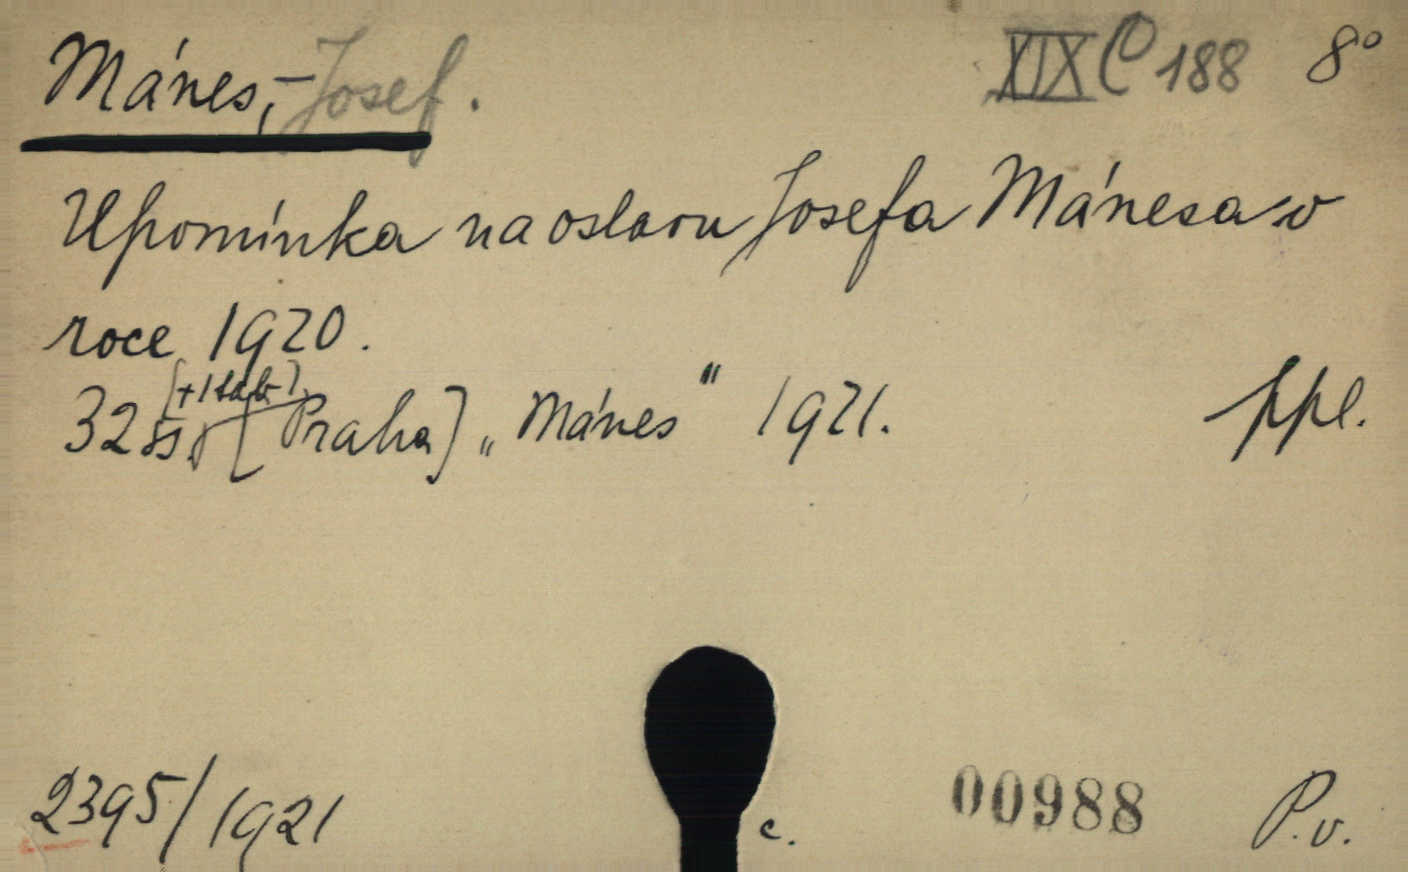 Mánes, - Josef.
XIX C 188 8°
Upomínka na oslavu Josefa Mánesa v
roce 1920.
[+1 tab.]
32 ss. [Praha] „Mánes" 1921.
ppl.
2395/1921
c.
00988
P.v.